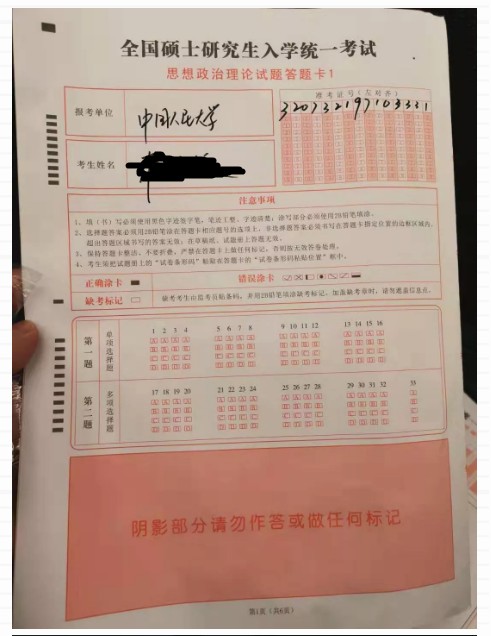 全国硕士研究生入学统一考试
思想政治理论试题答题卡1
报考单位 中国人民大学
准考证号(左对齐)
考生姓名
注意事项
1、填(书)写必须使用黑色字迹签字笔,笔迹工整、字迹清楚;涂写部分必须使用2B铅笔填涂。
2、选择题答案必须用2B铅笔涂在答题卡相应题号的选项上,非选择题答案必须书写在答题卡指定位置的边框区域内,
超出答题区域书写的答案无效;在草稿纸、试题册上答题无效。
3、保持答题卡整洁、不要折叠,严禁在答题卡上做任何标记,否则按无效答卷处理。
4、考生须把试题册上的“试卷条形码”粘贴在答题卡的“试卷条形码粘贴位置”框中。
正确涂卡 错误涂卡
缺考标记
第一题 单项选择题
1 2 3 4 5 6 7 8 9 10 11 12 13 14 15 16
第二题 多项选择题
17 18 19 20 21 22 23 24 25 26 27 28 29 30 31 32 33
阴影部分请勿作答或做任何标记